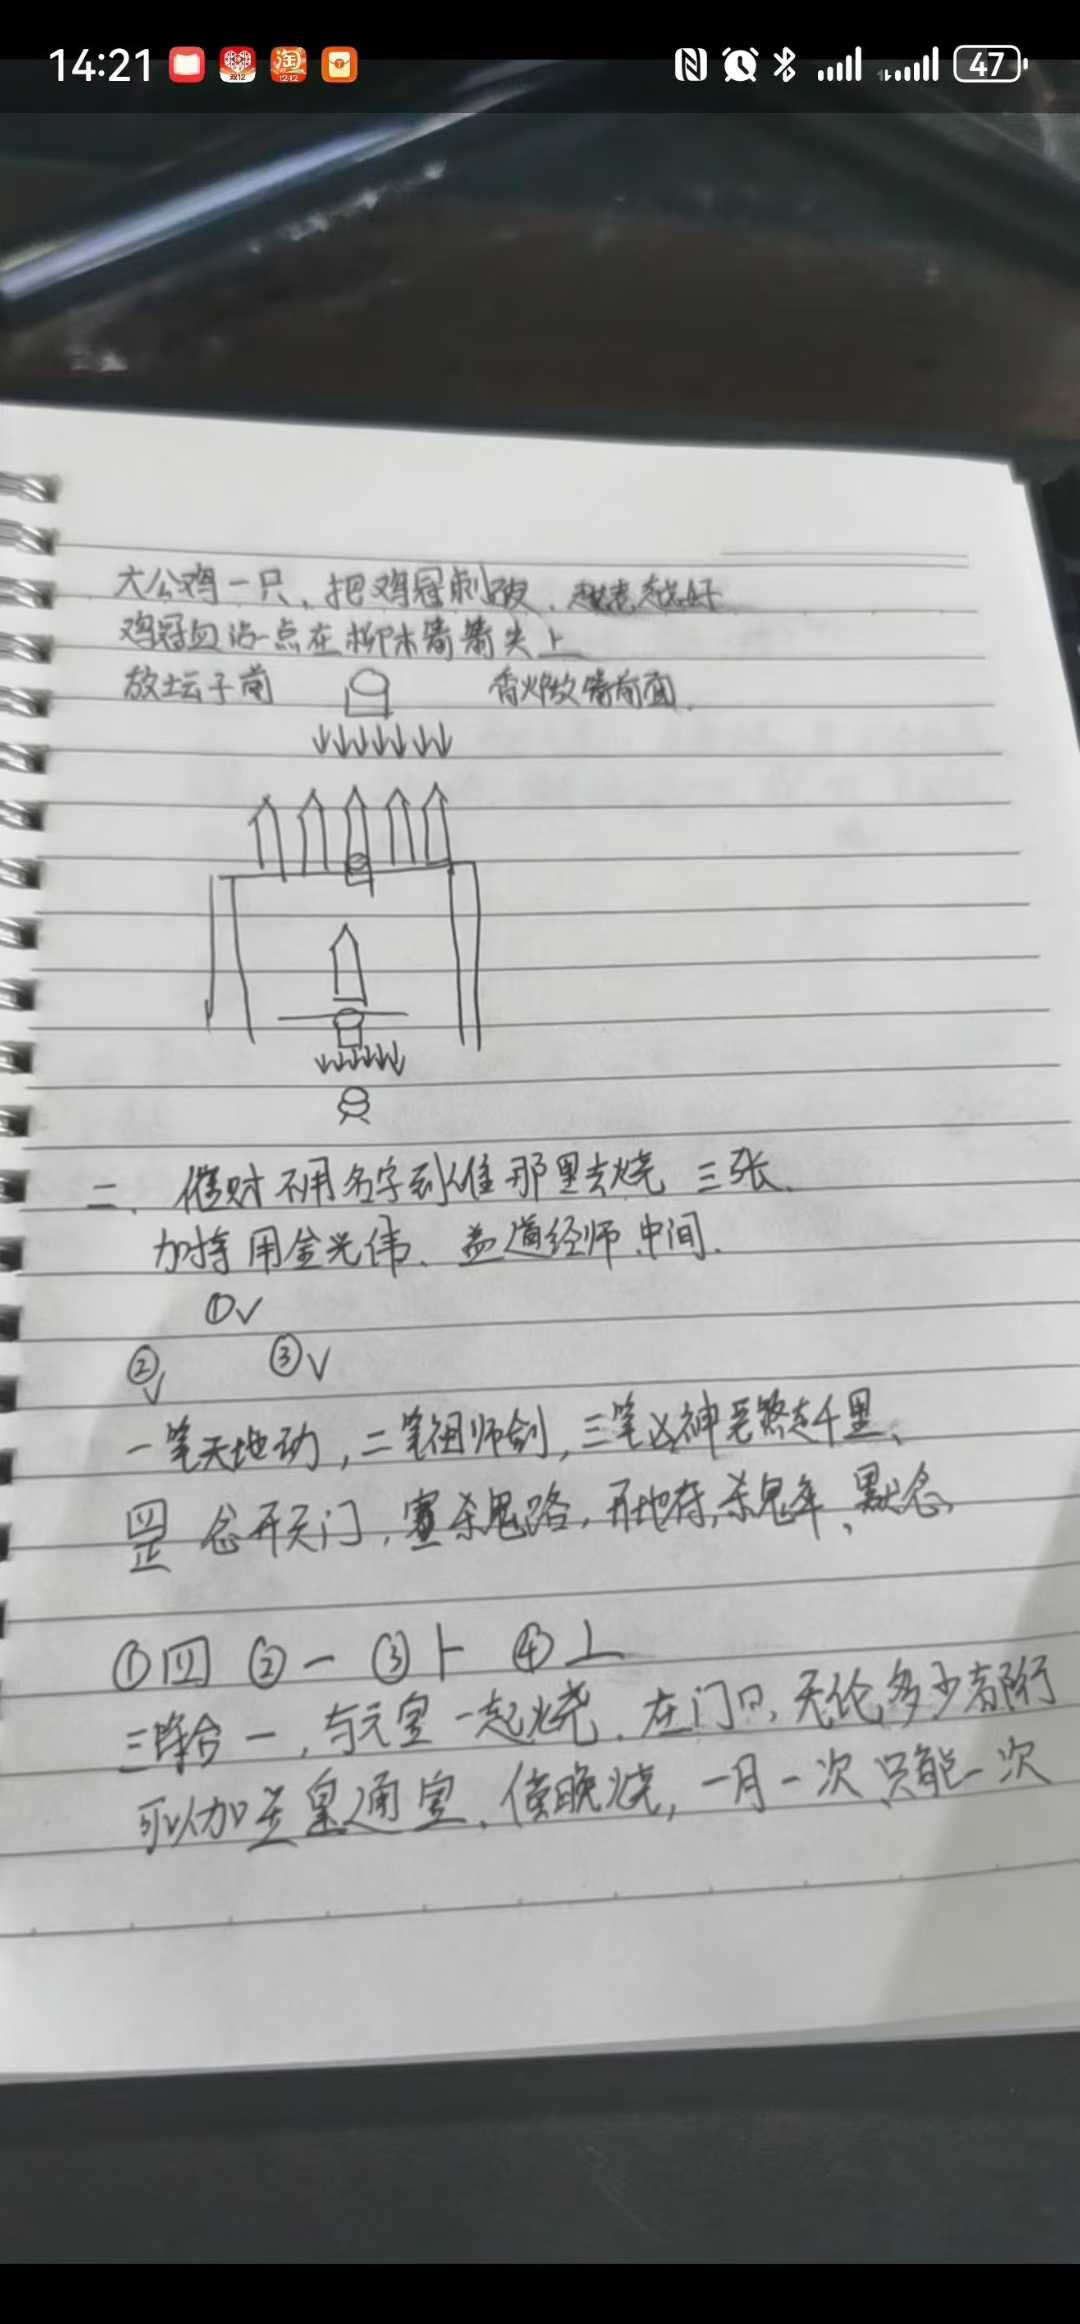 14:21
47
大公鸡一只，把鸡冠刺破．越老越好
鸡冠血沾一点在柳木箭箭尖上
放坛子前
香火放箭前面．
二．催财不用名字到谁那里去烧 三张．
加持用金光 ．道经师．中间．
①√
② √ ③√
一笔天地动，二笔祖师剑，三笔凶神恶煞走千里、
罡 念开天门，塞杀鬼路，开地府，杀鬼卒、默念，
①四 ②一 ③⺊ ④⊥
三 合一，与元宝一起烧．在门口，无论多少都行
可以加 皇通宝．傍晚烧，一月一次 只能一次